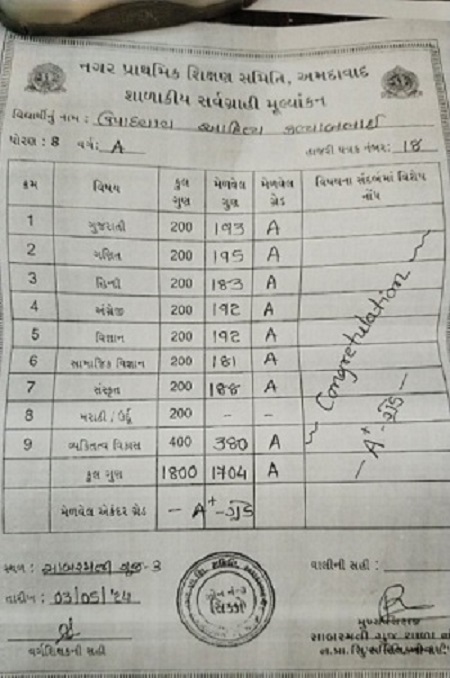 નગર પ્રાથમિક શિક્ષણ સમિતિ, અમદાવાદ
શાળાકીય સર્વગ્રાહી મૂલ્યાંકન
વિદ્યાર્થીનું નામ :
ધોરણ : 8 વર્ગ: A હાજરી પત્રક નંબર: 18
ક્રમ વિષય કુલ ગુણ મેળવેલ ગુણ મેળવેલ ગ્રેડ વિષયના સંદર્ભમાં વિશેષ નોંધ
1 ગુજરાતી 200 193 A
2 ગણિત 200 195 A
3 હિન્દી 200 183 A
4 અંગ્રેજી 200 192 A
5 વિજ્ઞાન 200 192 A
6 સામાજિક વિજ્ઞાન 200 181 A
7 સંસ્કૃત 200 188 A
8 મરાઠી / ઉર્દૂ 200 - -
9 વ્યક્તિત્વ વિકાસ 400 380 A
કુલ ગુણ 1800 1704 A
મેળવેલ એકંદર ગ્રેડ - A+ - ગ્રેડ
Congretulation
- A+ - ગ્રેડ -
સ્થળ : સાબરમતી ગુજ-૩ વાલીની સહી :
તારીખ : 03/05/'24
વર્ગશિક્ષકની સહી